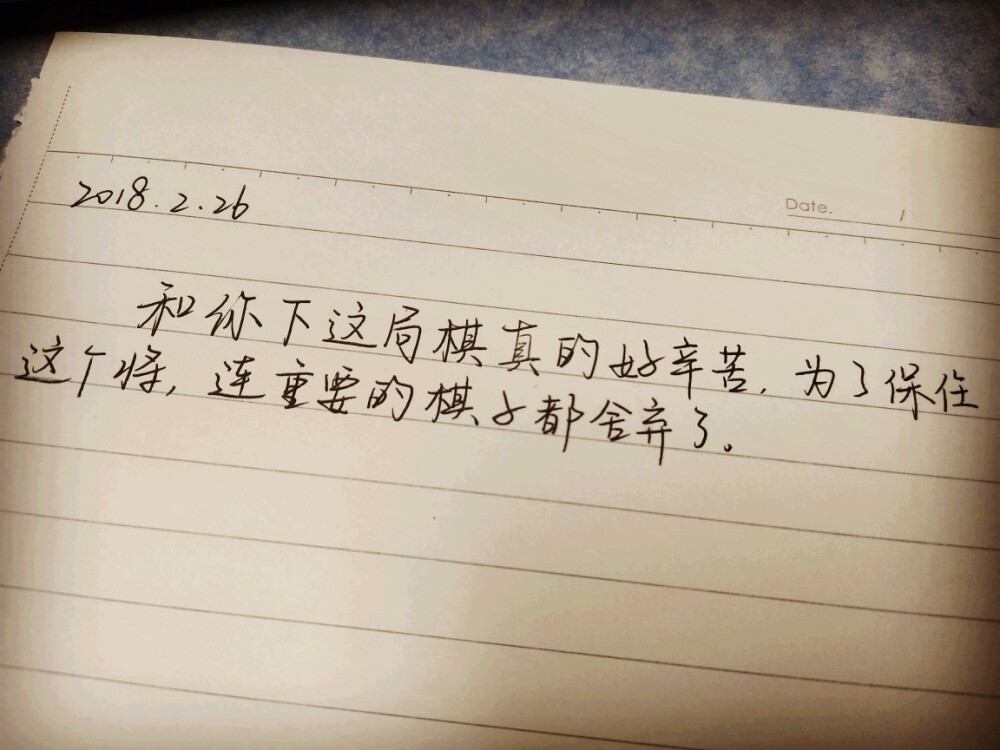 Date. /
2018.2.26
和你下这局棋真的好辛苦,为了保住
这个将,连重要的棋子都舍弃了。